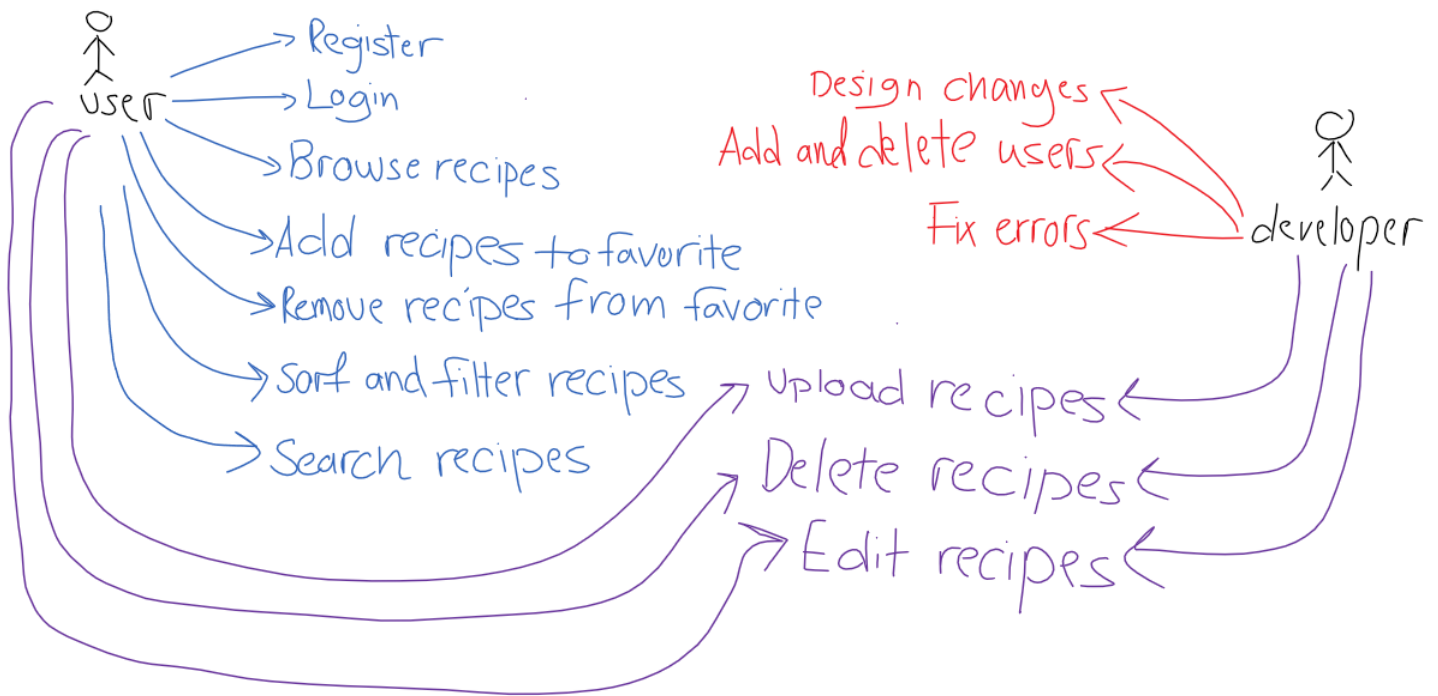 user
Register
Login
Browse recipes
Add recipes to favorite
Remove recipes from favorite
Sort and filter recipes
Search recipes
Design changes
Add and delete users
Fix errors
developer
Upload recipes
Delete recipes
Edit recipes